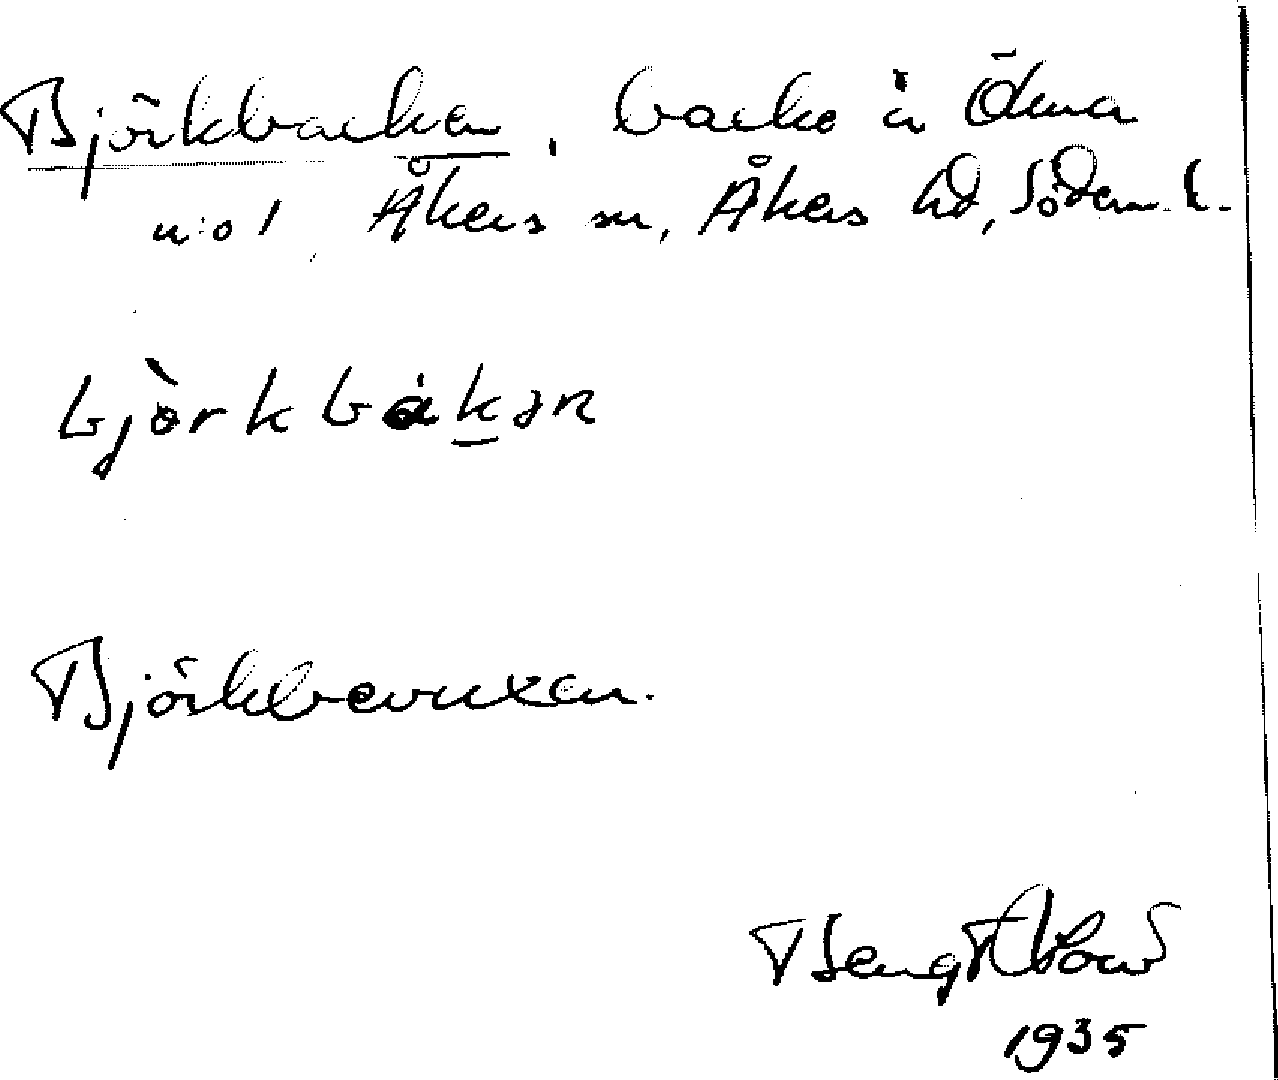 Björkbacken, backe å Ökna
n:o 1 Åkers sn, Åkers hd, Söderm. l.
bjòrkbákən
Björkbevuxen.
Bengt
1935